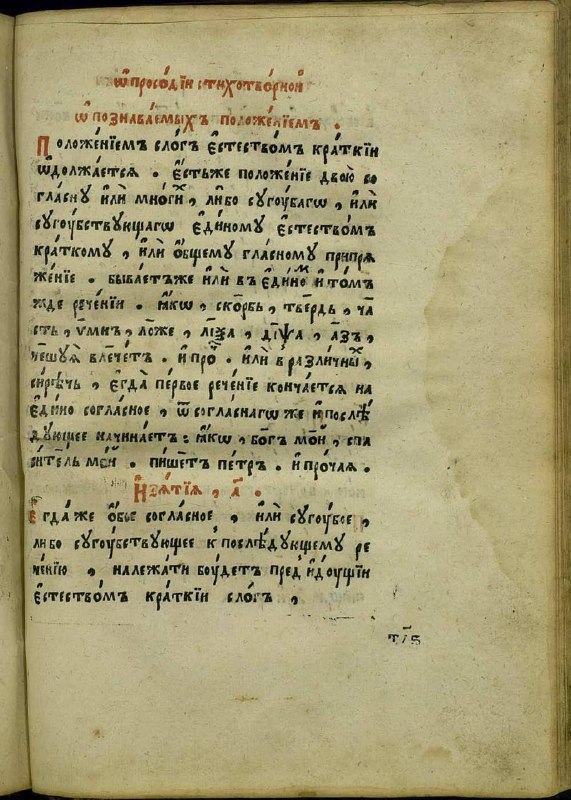 Ѡ просѡ́дїи стихотво́рной
Ѡ познава́емыхъ положе́нїемъ .
Положе́нїемъ сло́гъ є҆стество́мъ кра́ткїи
ѡ҆должа́ется . є҆́стьже положе́нїе двою̀ со
гла́сну и҆лѝ мно́ги́хъ , ли́бо сугоу́багѡ , и҆лѝ
сугоу́бствующагѡ є҆ди́ному є҆стество́мъ
кра́ткому , и҆лѝ ѻ҆́бщему гла́сному припря
же́нїе . быва́етъже и҆лѝ въ є҆ди́номъ и҆ то́мъ
жде рече́нїи . ꙗ҆́кѡ , ско́рбь , тве́рдь , ча́
сть , ло́же , а҆́зъ ,
влече́тъ . и҆ про́ч . и҆лѝ в разли́чныхъ ,
си́рѣчь , є҆гда̀ пе́рвое рече́нїе конча́ется на
є҆ди́но согла́сное , ѿ согла́снагѡ же и҆ послѣ́
дующее начина́етъ : ꙗ҆́кѡ , бо́гъ мо́й , спа
си́тель мо́й . пи́шетъ пе́тръ . и҆ про́чаѧ .
И҆з̾ѧ́тїѧ , а҃ .
Є҆гда́ же ѻ҆́бое согла́сное , и҆лѝ сугоу́бое ,
ли́бо сугоу́бствующее к̾ послѣ́дующему ре
че́нїю , належа́ти бу́детъ пред̾идоу́щїи
є҆стество́мъ кра́ткїи сло́гъ ,
т҃ѕ